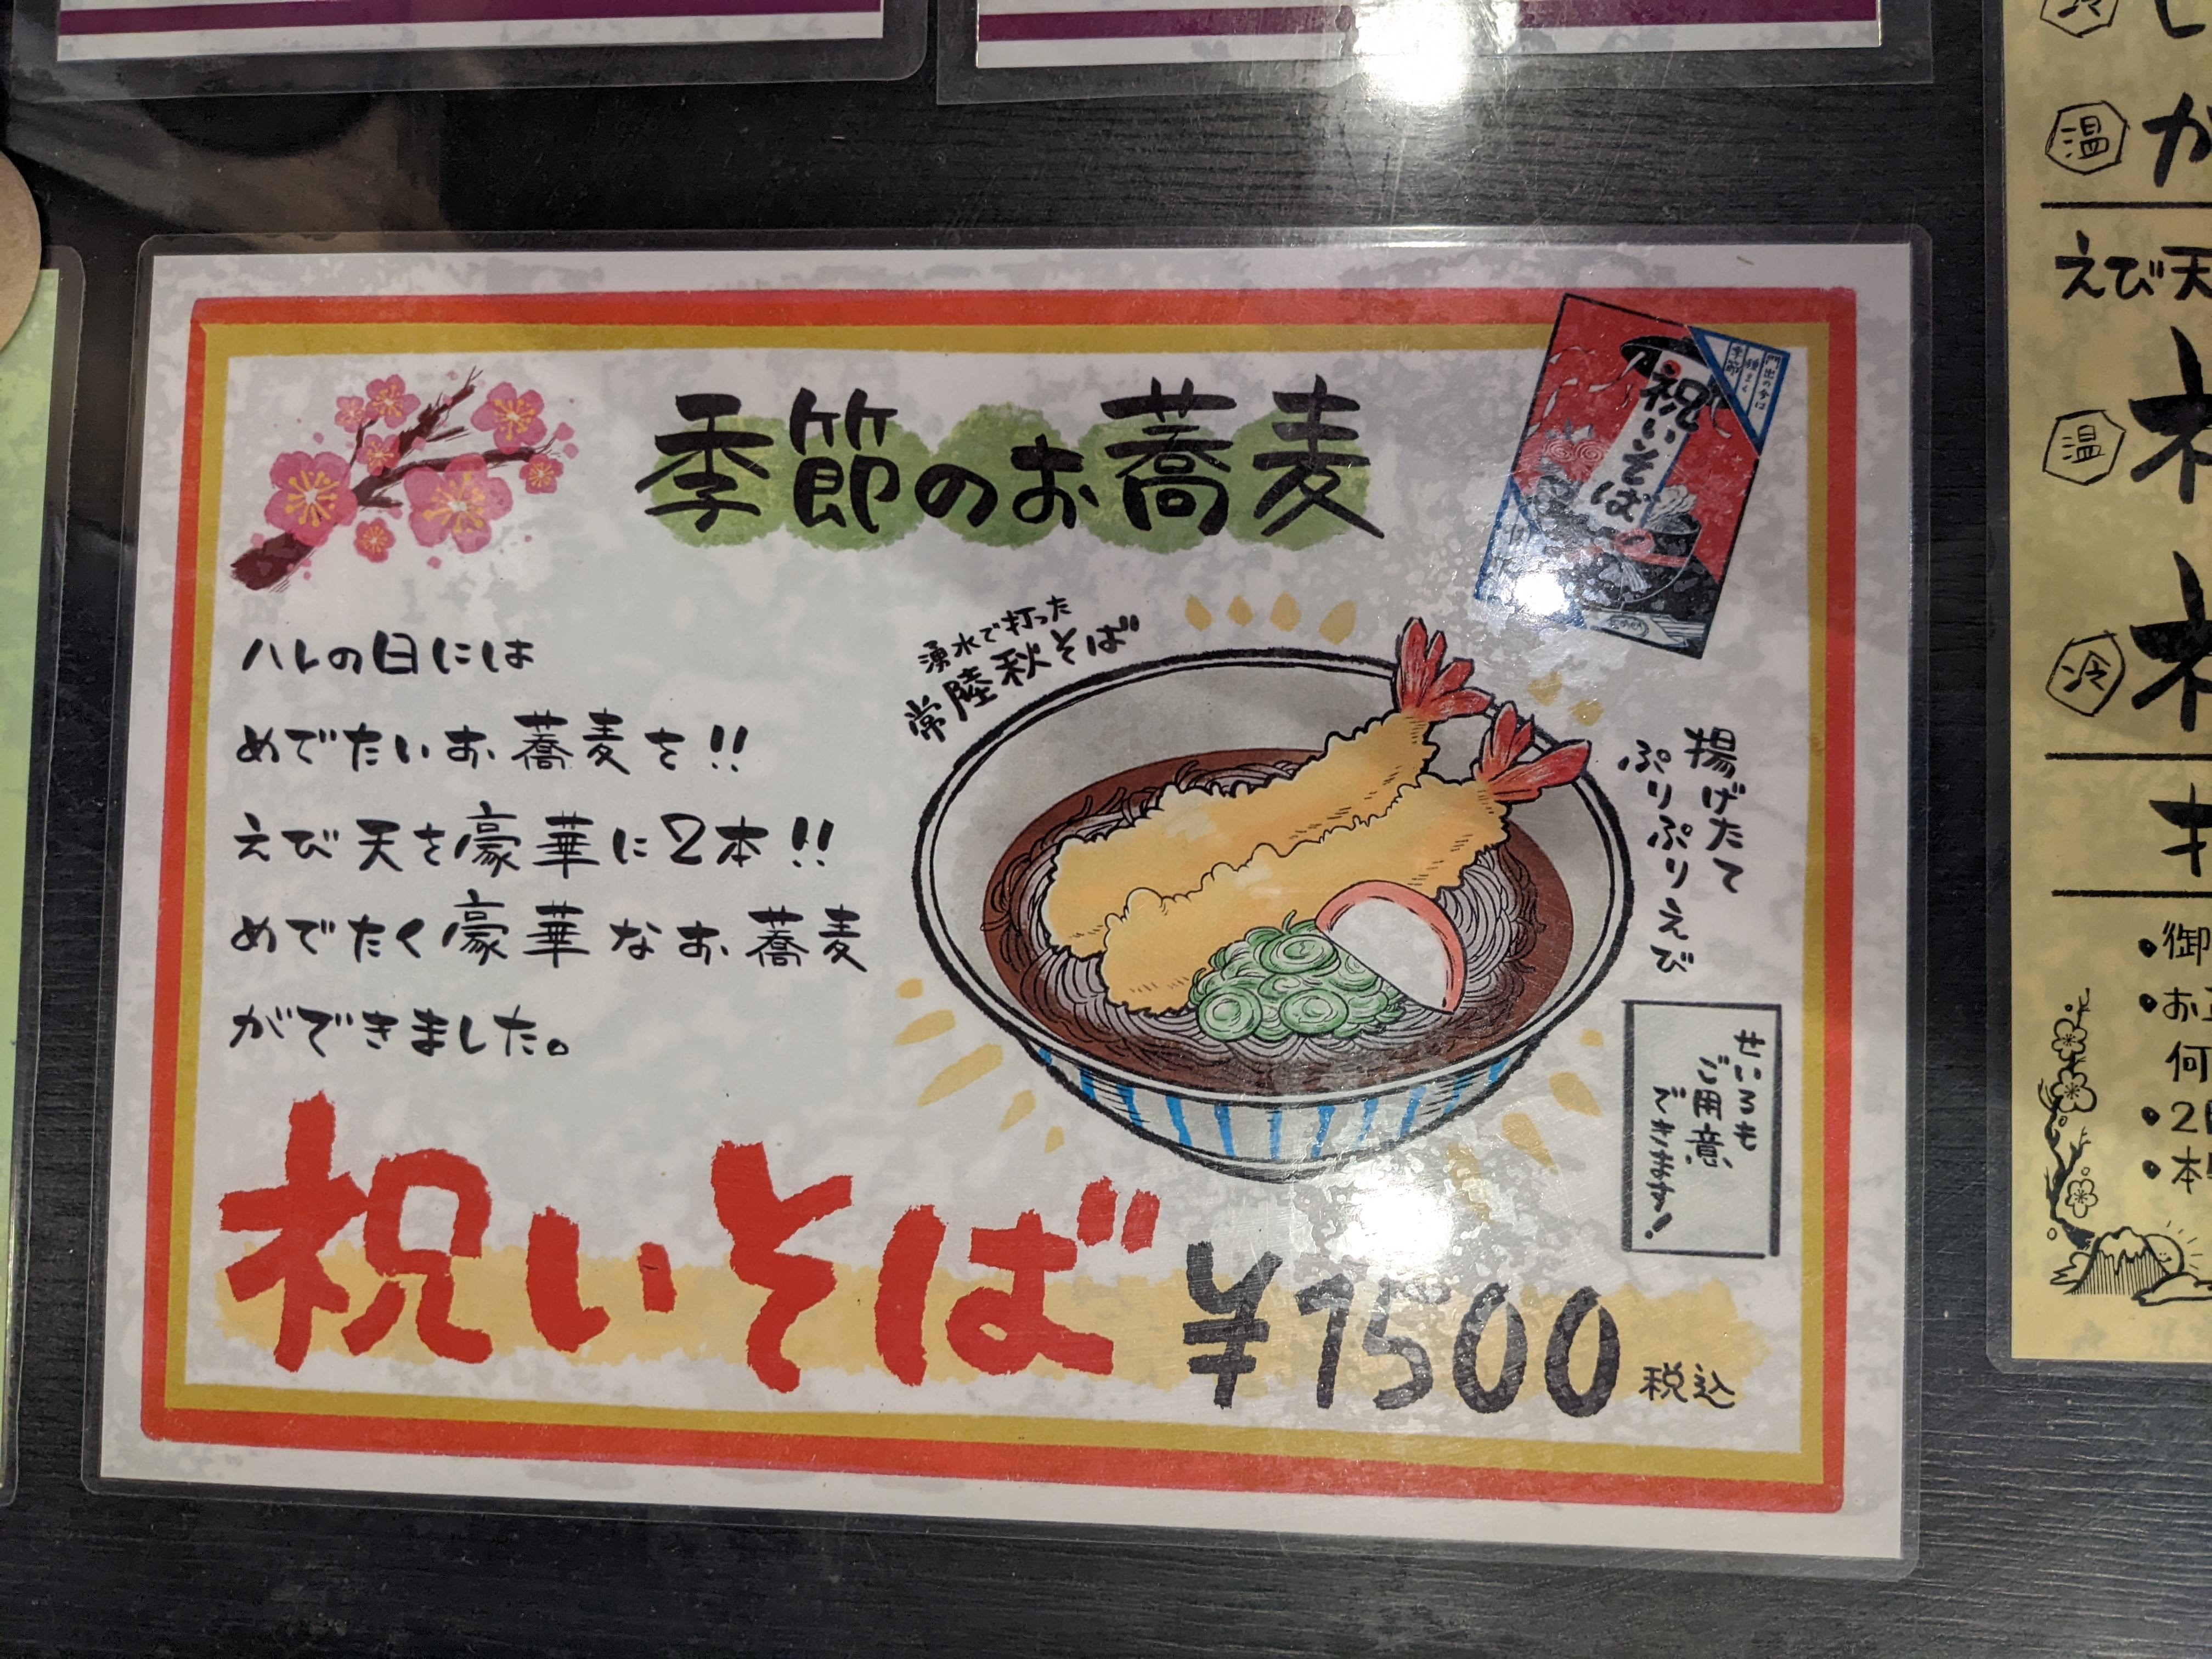 季節のお蕎麦
祝いそば
ハレの日には
めでたいお蕎麦を!!
えび天を豪華に2本!!
めでたく豪華なお蕎麦
ができました。
湧水で打った
常陸秋そば
揚げたて
ぷりぷりえび
せいろも
ご用意
できます!
祝いそば ¥1500 税込
温 か
えび天
温
冷
・御
・お
何
・2
・本